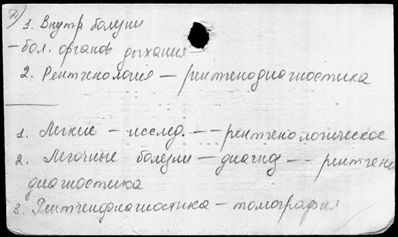 2) 1. Внутр болезни
- бол. органов дыхания -
2. Рентгенология — рентгенодиагностика
1. Легкие — исслед. -- рентгенологическое
2. Легочные болезни — диагнд -- рентгено
диагностика
3. Рентгендиагностика — томография